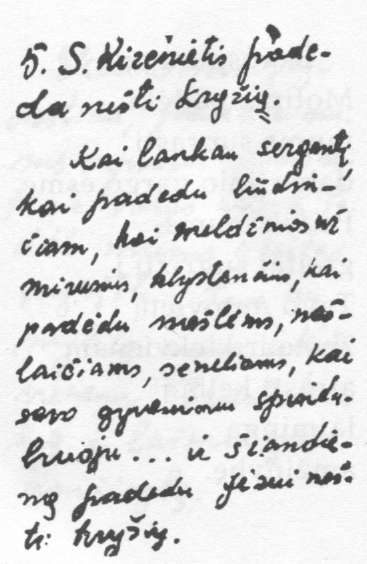 5. S. Kirėnietis pade-
da nešti kryžių.
Kai lankau sergantį,
kai padedu liūdin-
čiam, kai meldžiuos už
mirusius, klystančius, kai
padedu našlėms, naš-
laičiams, seneliams, kai
savo gyvenimu spindu-
liuoju... ir šiandie-
ną padedu Jėzui neš-
ti kryžių.